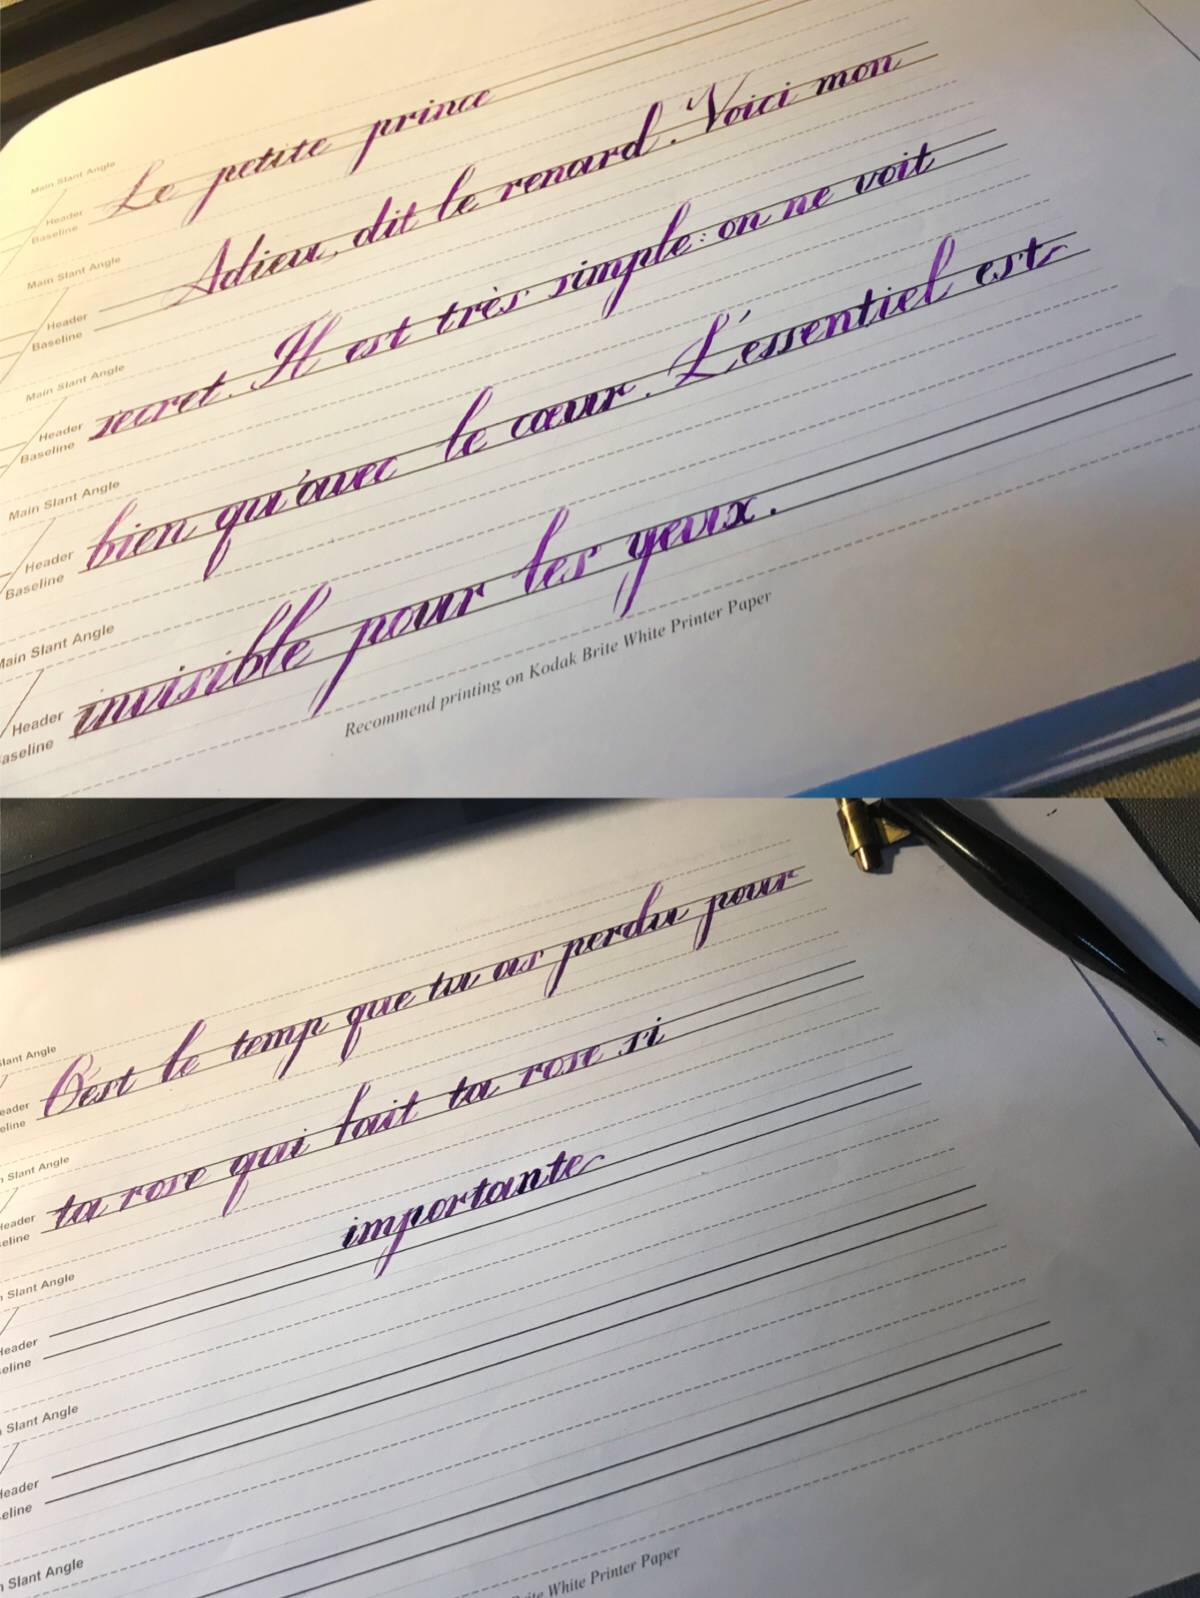 Main Slant Angle
Le petite prince
Header
Baseline
Main Slant Angle
Adieu, dit le renard. Voici mon
Header
Baseline
Main Slant Angle
secret. Il est très simple: on ne voit
Header
Baseline
Main Slant Angle
bien qu'avec le cœur. L'essentiel est
Header
Baseline
Main Slant Angle
invisible pour les yeux.
Header
Baseline
Recommend printing on Kodak Brite White Printer Paper
Slant Angle
C'est le temp que tu as perdu pour
eader
eline
Slant Angle
ta rose qui fait ta rose si
Header
eline
Slant Angle
importante
Header
eline
Slant Angle
Header
eline
Slant Angle
Brite White Printer Paper